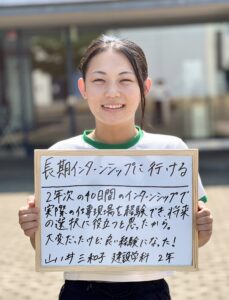 長期インターンシップに行ける
2年次の40日間のインターンシップで
実際の仕事現場を経験でき、将来
の選択に役立つと思ったから。
大変だったけど良い経験になった!
山ノ井 三和子 建設学科 2年